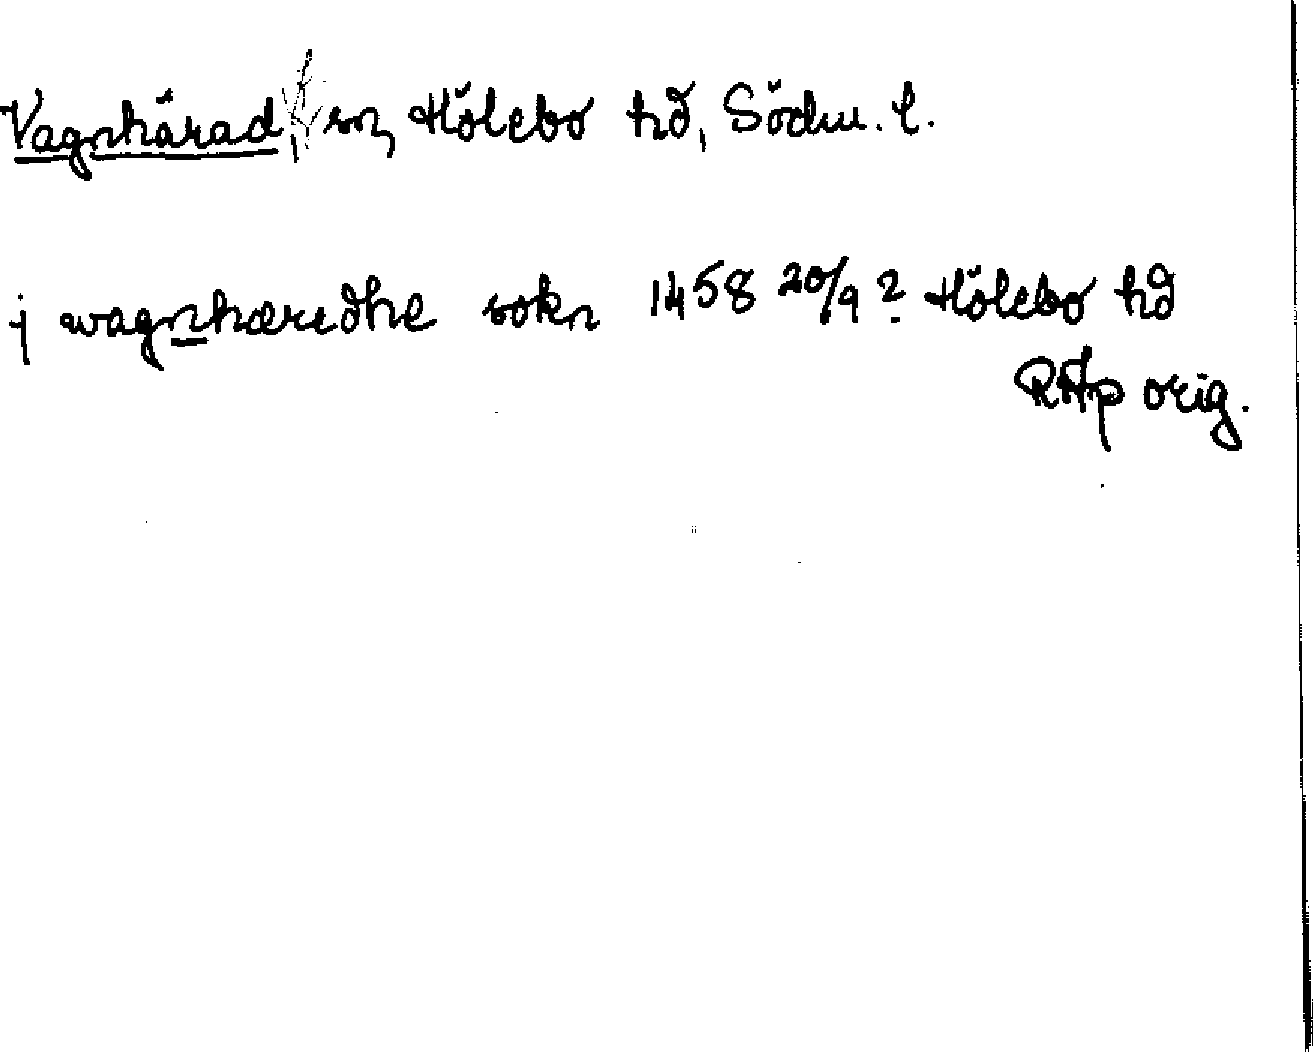 Vagnhärad, sn, Hölebo hd, Södm. l.
j wagnhæredhe sokn 1458 20/9 ? Hölebo hd
RAp orig.